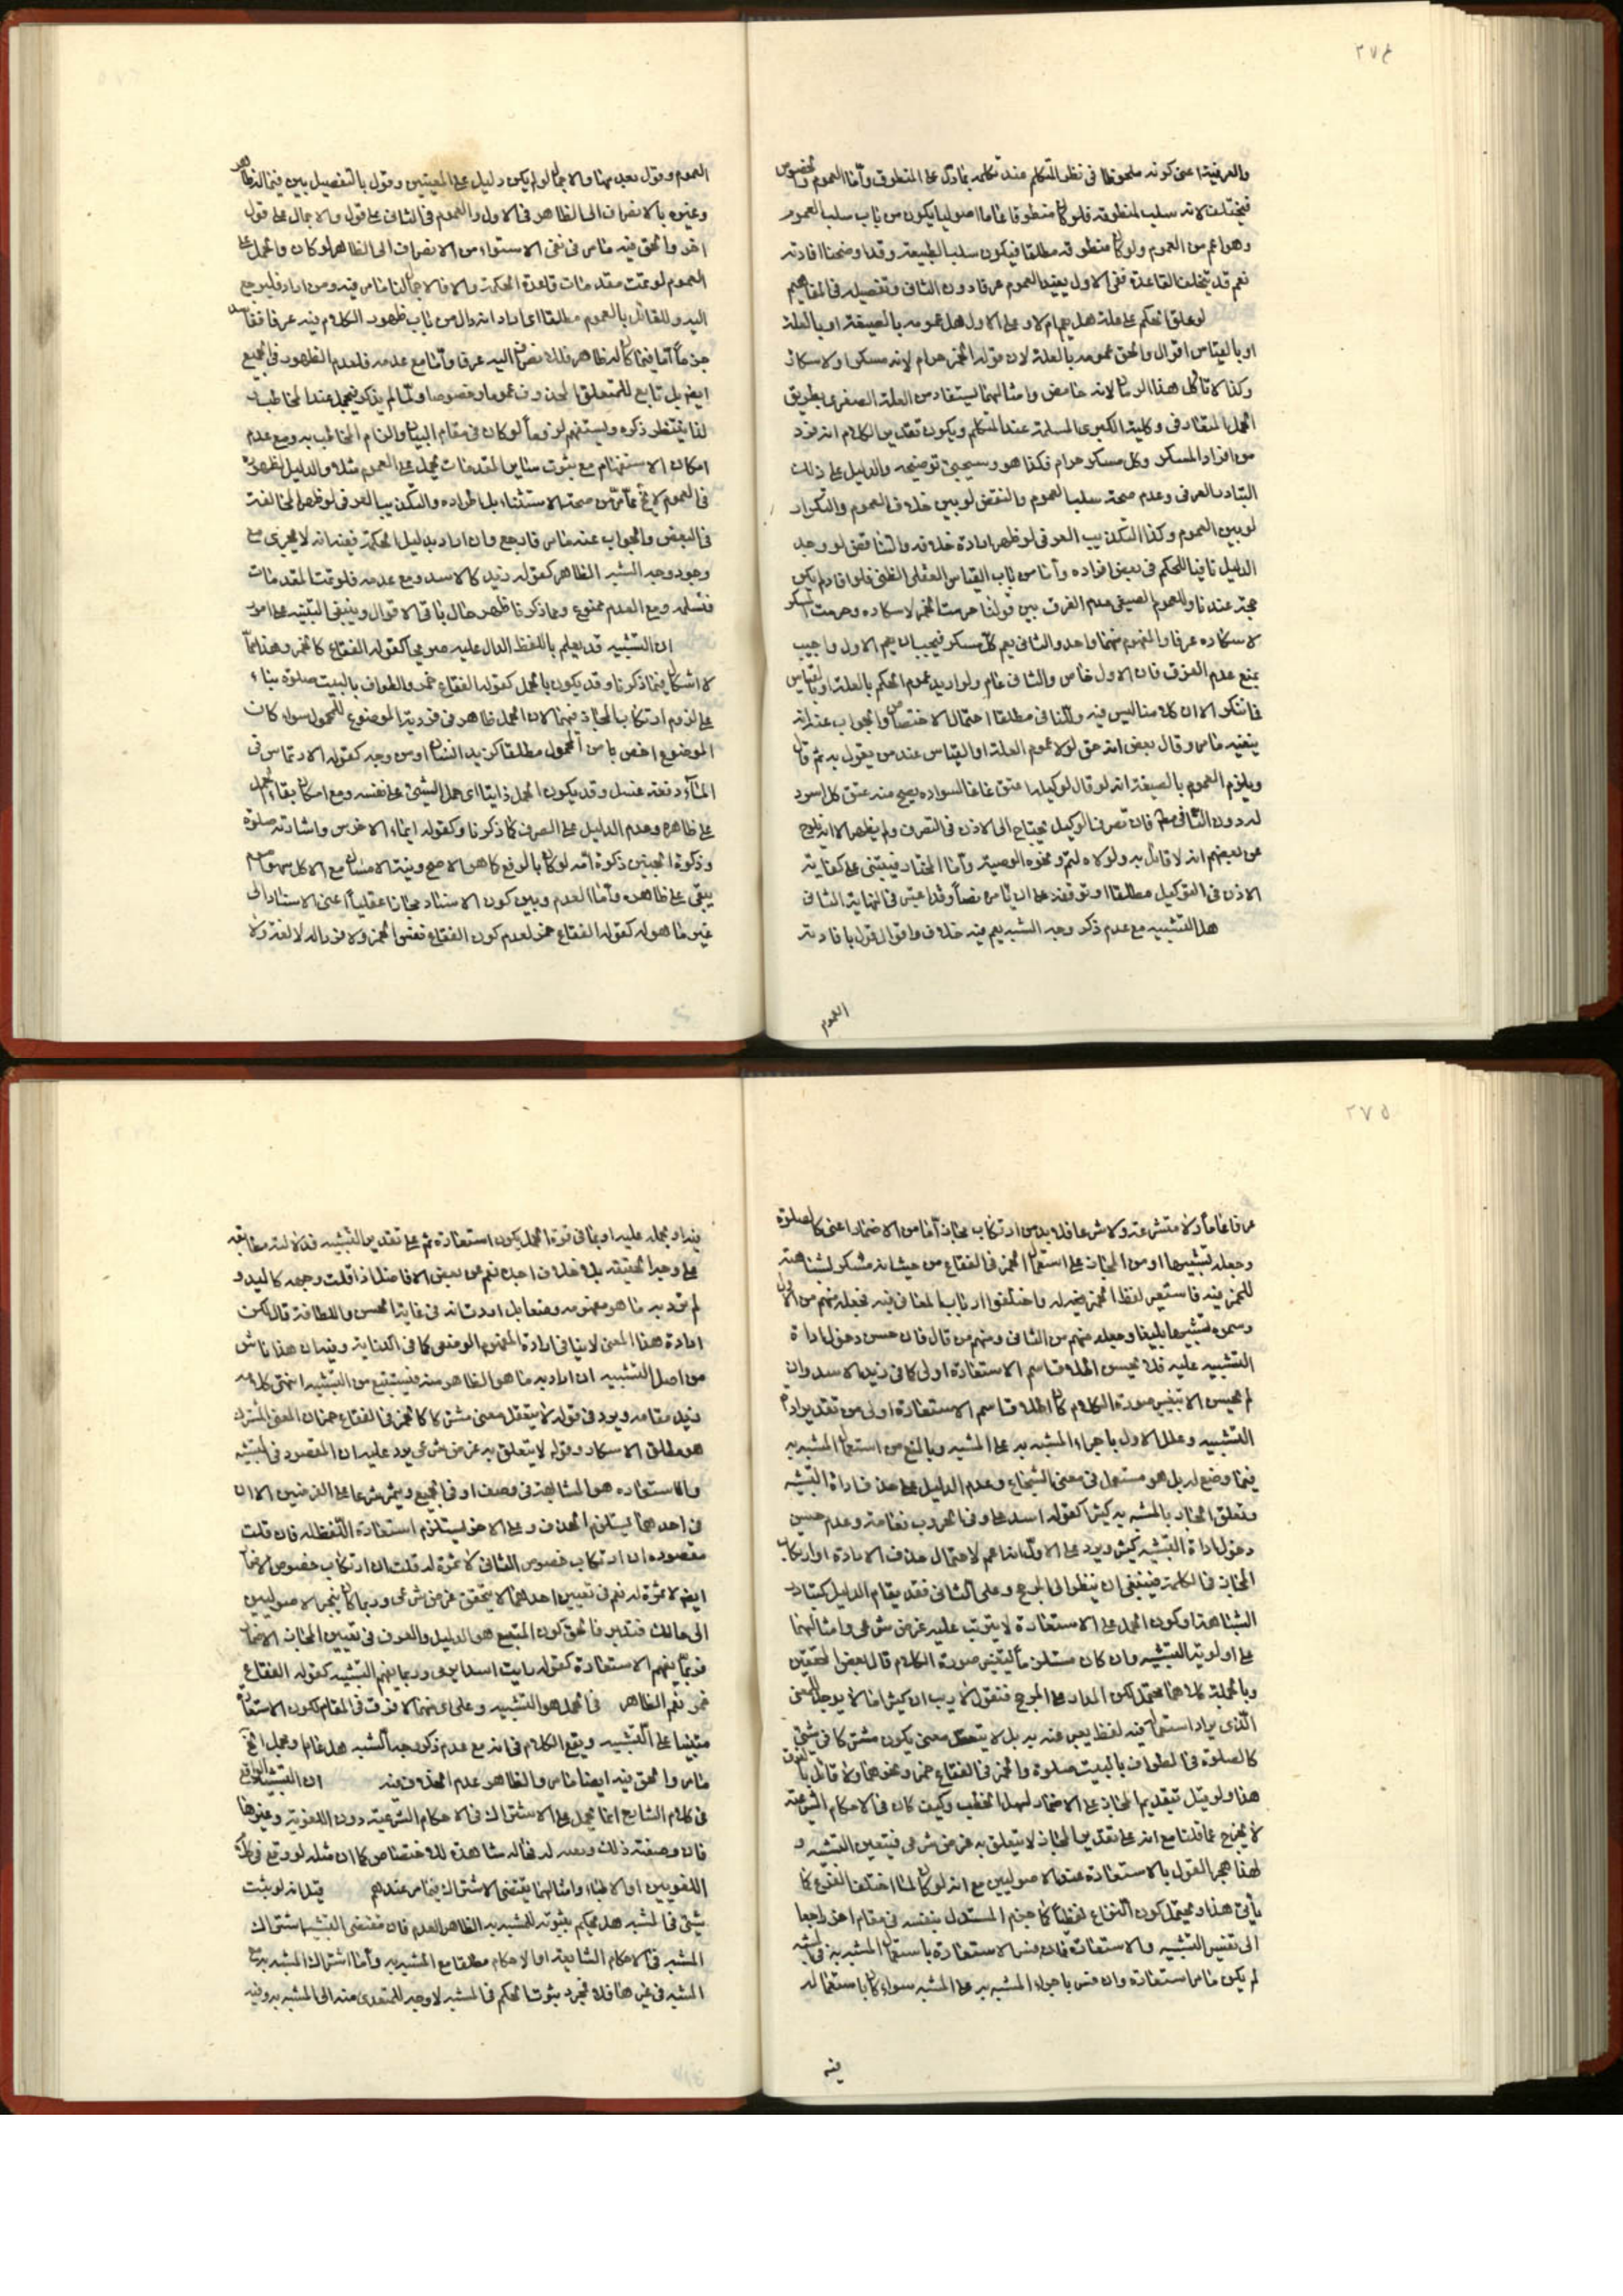 ٢٧٤
والعرفية اعنى كونه ملحوظا فى نظر المتكلم عند تكلمه بما دل على المنطوق واما العموم والخصوص
فيختلف لانه سلب لمنطوقه فلو كان منطوقا عاما اصوليا يكون من باب سلب العموم
وهو اعم من العموم ولو كان منطوقه مطلقا فيكون سلب الطبيعة وقد اوضحنا افادته
نعم قد يتخلف القاعدة ففى الاول يفيد العموم عرفا دون الثانى وتفصيله فى المفاهيم
لو علق الحكم على علة هل يعم ام لا وعلى الاول هل عمومه بالصيغة او بالعلة
او بالقياس اقوال والحق عمومه بالعلة لان قوله الخمر حرام لانه مسكر او لاسكاره
وكذا لا تاكل هذا الرمان لانه حامض وامثالهما يستفاد من العلة الصغرى بطريق
الحمل المتعارفى وكلية الكبرى المسلمة عند المتكلم ويكون تقدير الكلام انه فرد
من افراد المسكر وكل مسكر حرام فكذا هو وسيجئ توضيحه والدليل على ذلك
التبادر العرفى وعدم صحة سلب العموم والنقض لو بين خلاف العموم والتكرار
لو بين العموم وكذا التكذيب العرفى لو ظهر ارادة خلافه والتناقض لو وجد
الدليل نافيا للحكم فى بعض افراده واما من باب القياس العقلى الظنى فلو افاد لم يكن
حجة عندنا وللعموم الصيغى عدم الفرق بين قولنا حرمت الخمر لاسكاره وحرمت المسكر
لاسكاره عرفا والمفهوم منهما واحد والثانى يعم كل مسكر فيجب ان يعم الاول واجيب
بمنع عدم الفرق فان الاول خاص والثانى عام ولو اريد عموم الحكم بالعلة او بالقياس
فلا ننكر الا ان كلامنا ليس فيه وللنافى مطلقا احتمال الاختصاص والجواب عنه انه
ينفيه وقال بعض انه حق لولا عموم العلة او القياس عند من يقول به ثم قال
ويلزم العموم بالصيغة انه لو قال لوكيله اعتق غانما لسواده يصح منه عتق كل اسود
له دون الثانى فان تصرف الوكيل يحتاج الى الاذن فى التصرف ولم يظهر الا انه يلوح
عن بعضهم انه لا قائل به ولولاه لتم ونحوه الوصية واما المختار فيبتنى على كفاية
الاذن فى التوكيل مطلقا او توقفه على ان يكون نصا وقد اعتبر فى النهاية الثانى
هل التشبيه مع عدم ذكر وجه الشبه يعم فيه خلاف واقوال قول بافادته
العموم
العموم وقول بعدمها والاجمال لو لم يكن دليل على التعيين وقول بالتفصيل بين فيما له ظاهر
وغيره بالانصراف الى الظاهر فى الاول والعموم فى الثانى على قول والاجمال على قول
اخر والحق فيه ما مر فى نفى الاستواء من الانصراف الى الظاهر لو كان والحمل على
العموم لو تمت مقدمات قاعدة الحكمة والا فالاجمال لما مر فيه ومن اراد فليرجع
اليه وللقائل بالعموم مطلقا
اما فيما كان له ظاهر فلانصرافه اليه عرفا واما مع عدمه فلعدم الظهور فى الجميع
ايضا بل تابع للمتعلق المحذوف عموما وخصوصا ولما لم يذكر فيجمل عند المخاطب
لذا ينتظر ذكره ويستفهم لو فجأ لو كان فى مقام البيان والزام المخاطب به ومع عدم
امكان الاستفهام مع ثبوت سائر المقدمات يحمل على العموم مثله والدليل لظهوره
فى العموم لا يخ عما مر من صحة الاستثناء بل اطراده والتكذيب العرفى لو ظهر المخالفة
فى البعض والجواب عنه ما مر فارجع وان اراد بدليل الحكمة ففيه انه لا يجرى مع
وجود وجه الشبه الظاهر كقوله زيد كالاسد ومع عدمه فلو تمت المقدمات
فنسلمه ومع العدم ممنوع وبما ذكرنا ظهر حال باقى الاقوال وينبغى التنبيه على امور
ان التشبيه قد يعلم باللفظ الدال عليه صريحا كقوله الفقاع كالخمر وهذا مما
لا اشكال فيما ذكرنا وقد يكون بالحمل كقوله الفقاع خمر والطواف بالبيت صلوة بناء
على لزوم ارتكاب المجاز فيهما لان الحمل ظاهر فى فردية الموضوع للمحمول سواء كان
الموضوع اخص من المحمول مطلقا كزيد انسان او من وجه كقوله الارتماس فى
الماء دفعة غسل وقد يكون الحمل ذاتيا اى حمل الشيئ على نفسه ومع امكان بقاء الحمل
على ظاهره وعدم الدليل على الصرف كما ذكرنا وكقوله ايماء الاخرس واشارته صلوة
وذكوة الجنين ذكوة امه لو كان بالرفع كما هو الاصح ونية الامساك مع الاكل سهوا صوم
يبقى على ظاهره واما العدم وبين كون الاسناد مجازا عقليا اعنى الاسناد الى
غير ما هو له كقوله الفقاع خمر لعدم كون الفقاع نفس الخمر ولا فرد له لا لغة ولا
٢٧٥
عرفا عاما ولا متشرعة ولا شرعا فلا بد من ارتكاب مجاز اما من الاضمار اعنى كالصلوة
وجعله تشبيها او من المجاز على استعمال الخمر فى الفقاع من حيث انه مسكر لمشابهته
للخمر فيه فاستعير لفظ الخمر له واختلفوا ارباب المعانى فيه فجعله بعضهم من الاول
وسموه تشبيها بليغا وجعله بعضهم من الثانى ومنهم من قال فان حسن دخول اداة
التشبيه عليه فلا يحسن اطلاق اسم الاستعارة اولى كما فى زيد الاسد وان
لم يحسن الا بتغيير صورة الكلام كان اطلاق اسم الاستعارة اولى من تقدير اداة
التشبيه وعلل الاول باجراء المشبه به على المشبه وبالمنع من استعمال المشبه به
فيما وضع له بل هو مستعمل فى معنى الشجاع وعدم الدليل على حذف اداة التشبيه
وتعلق الجار بالمشبه به كثيرا كقوله اسد على وفى الحروب نعامة وعدم حسن
دخول اداة التشبيه كثير ويرد على الاول انه اعم لاحتمال حذف الاداة او ارتكاب
المجاز فى الكلمة فينبغى ان ينظر الى المرجح وعلى الثانى فقد يقام الدليل كتبادر
المشابهة او كون الحمل على الاستعارة لا يترتب عليه غرض شرعى وامثالهما
على اولوية التشبيه وان كان مستلزما لتغيير صورة الكلام قال بعض المحققين
وبالجملة كلاهما محتمل لكن المدار على المرجح فنقول لا ريب ان كثيرا ما لا يوجد للمعنى
الذى يراد استعماله فيه لفظ يعبر عنه به بل لا يتعقل معنى يكون مشتركا فى شئ
كالصلوة فى الطواف بالبيت صلوة والخمر فى الفقاع خمر ونحوهما ولا قائل بالفرق
هذا ولو قيل بتقديم المجاز على الاضمار لسهل الخطب وكيف كان فى الاحكام الشرعية
لا يخرج عما قلنا مع انه على تقدير المجاز لا يتعلق به غرض شرعى فيتعين التشبيه و
لهذا هجر القول بالاستعارة عند الاصوليين مع انه لو كان لما اختلف الفروع كما
يأتى هذا ويحتمل كون النزاع لفظيا كما جزم المستدل بنفسه فى مقام اخر راجعا
الى تفسير التشبيه والاستعارة فان فسر الاستعارة باستعمال المشبه به فى المشبه
لم يكن ما مر استعارة وان فسر باجراء المشبه به على المشبه سواء كان باستعماله
فيه
فيه او بحمله عليه او بما فى قوة الحمل يكون استعارة ثم على تقدير التشبيه فدلالته مطابقة
على وجه الحقيقة بلا خلاف اجده نعم عن بعض الافاضل اذا قلت وجهه كالبدر
لم ترد به ما هو مفهومه وضعا بل اردت انه فى غاية الحسن واللطافة قال لكن
ارادة هذا المعنى لا ينافى ارادة المفهوم الوضعى كما فى الكناية وفيه ان هذا ناش
من اصل التشبيه ان اراد به ما هو الظاهر منه فيستتبع من التشبيه انتهى كلامه
زيد مقامه ويرد فى قوله لا يتعقل معنى مشتركا كالخمر فى الفقاع خمر ان المعنى المشترك
هو مطلق الاسكار وقوله لا يتعلق به غرض شرعى يرد عليه ان المقصود فى التشبيه
والاستعارة هو المشابهة فى وصف او فى الجميع ويثمر شرعا على الفرضين الا ان
فى احدهما يستلزم الحذف وعلى الاخر يستلزم استعارة اللفظ له فان قلت
مقصوده ان ارتكاب خصوص الثانى لا ثمرة له قلت ان ارتكاب خصوص الاضمار
ايضا لا ثمرة له نعم فى تعيين احدهما لا يتحقق غرض شرعى وربما كان ينجر الاصوليين
الى ذلك فتدبر فالحق كون المتبع هو الدليل والعرف فى تعيين المجاز والاضمار
فربما يفهم الاستعارة كقوله رايت اسدا يرمى وربما يفهم التشبيه كقوله الفقاع
خمر نعم الظاهر فى الحمل هو التشبيه وعلى اى منهما لا فرق فى المقام لكون الاستعارة
مبتنيا على التشبيه ويقع الكلام فى انه مع عدم ذكر وجه الشبه هل عام ومجمل الخ
ما مر والحق فيه ايضا ما مر والظاهر عدم الخلاف فيه ان التشبيه الواقع
فى كلام الشارع انما يحمل على الاشتراك فى الاحكام الشرعية دون اللغوية وغيرها
فان وصفته ذلك وبعد له حاله شاهدة للاختصاص كما ان مثله لو وقع فى كلام
اللغويين او الاطباء وامثالهما يقتضى الاشتراك بما مر عندهم قيل انه لو ثبت
شئ فى المشبه هل يحكم بثبوته للمشبه به الظاهر العدم فان مقتضى التشبيه اشتراك
المشبه فى الاحكام الشايعة او الاحكام مطلقا مع المشبه به واما اشتراك المشبه به مع
المشبه فى غيرها فلا فمجرد ثبوت الحكم فى المشبه لا وجه للتعدى منه الى المشبه به وفيه